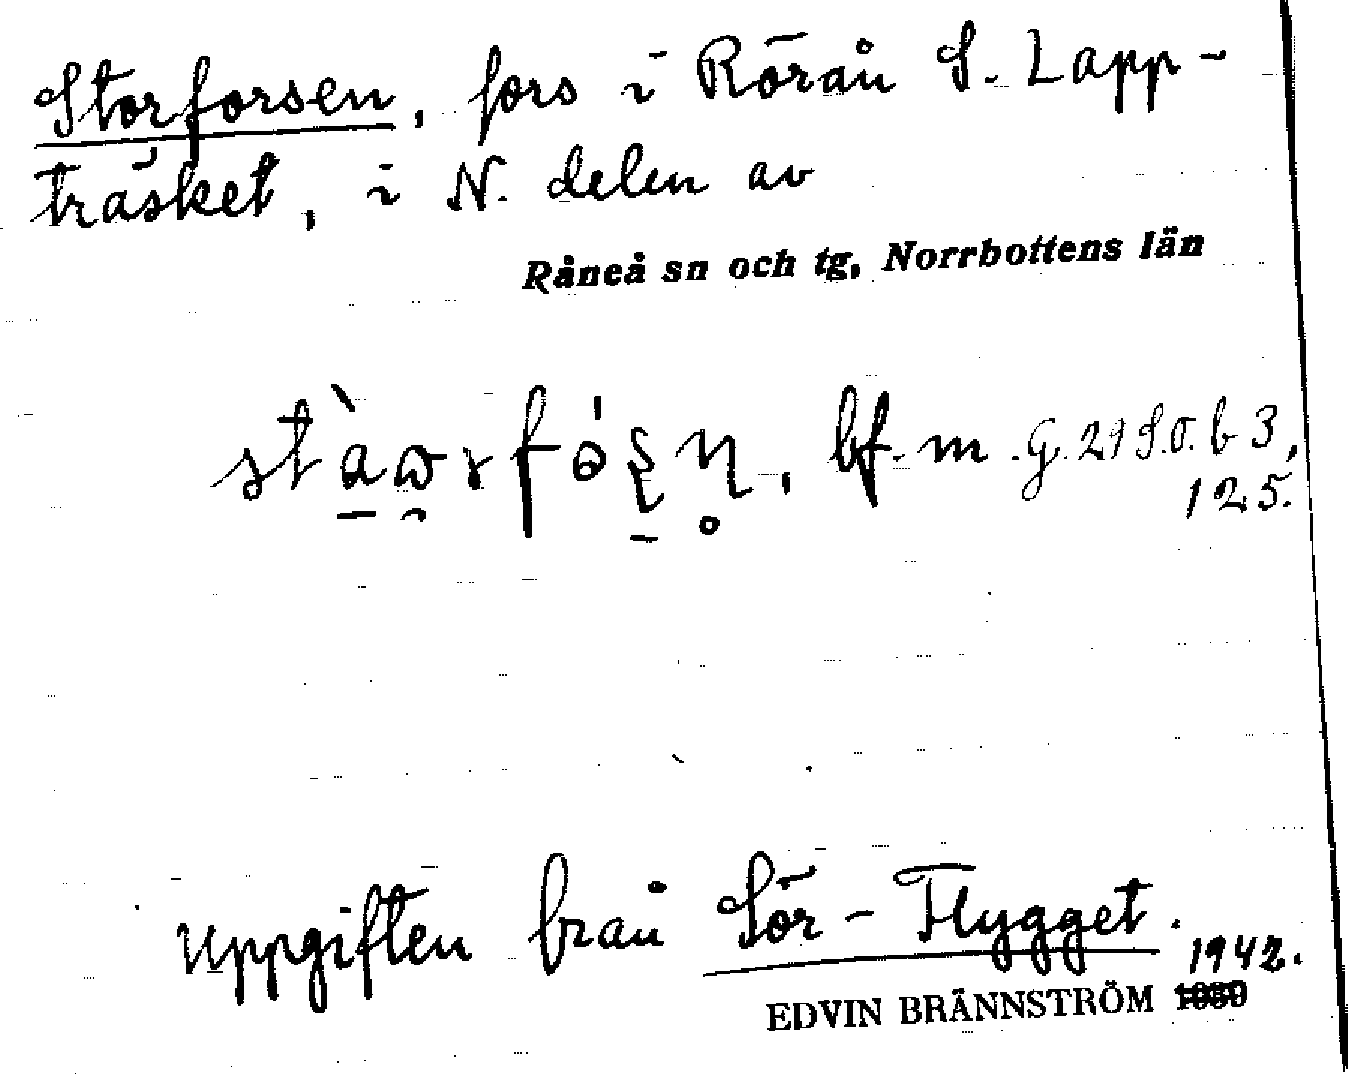 Storforsen, fors i Rörån S. Lapp-
träsket, i N. delen av
Råneå sn och tg, Norrbottens län
bf. m. G. 21 S.O. b 3,
125.
Uppgiften från Sör-Flygget.
1942.
EDVIN BRÄNNSTRÖM